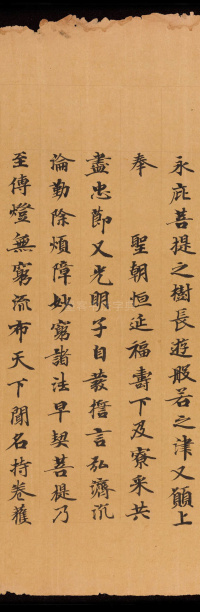 永庇菩提之樹長遊般若之津又願上
奉　聖朝恒延福壽下及寮采共
盡忠節又光明子自發誓言弘濟沉
淪勤除煩障妙窮諸法早契菩提乃
至傳燈無窮流布天下聞名持卷獲